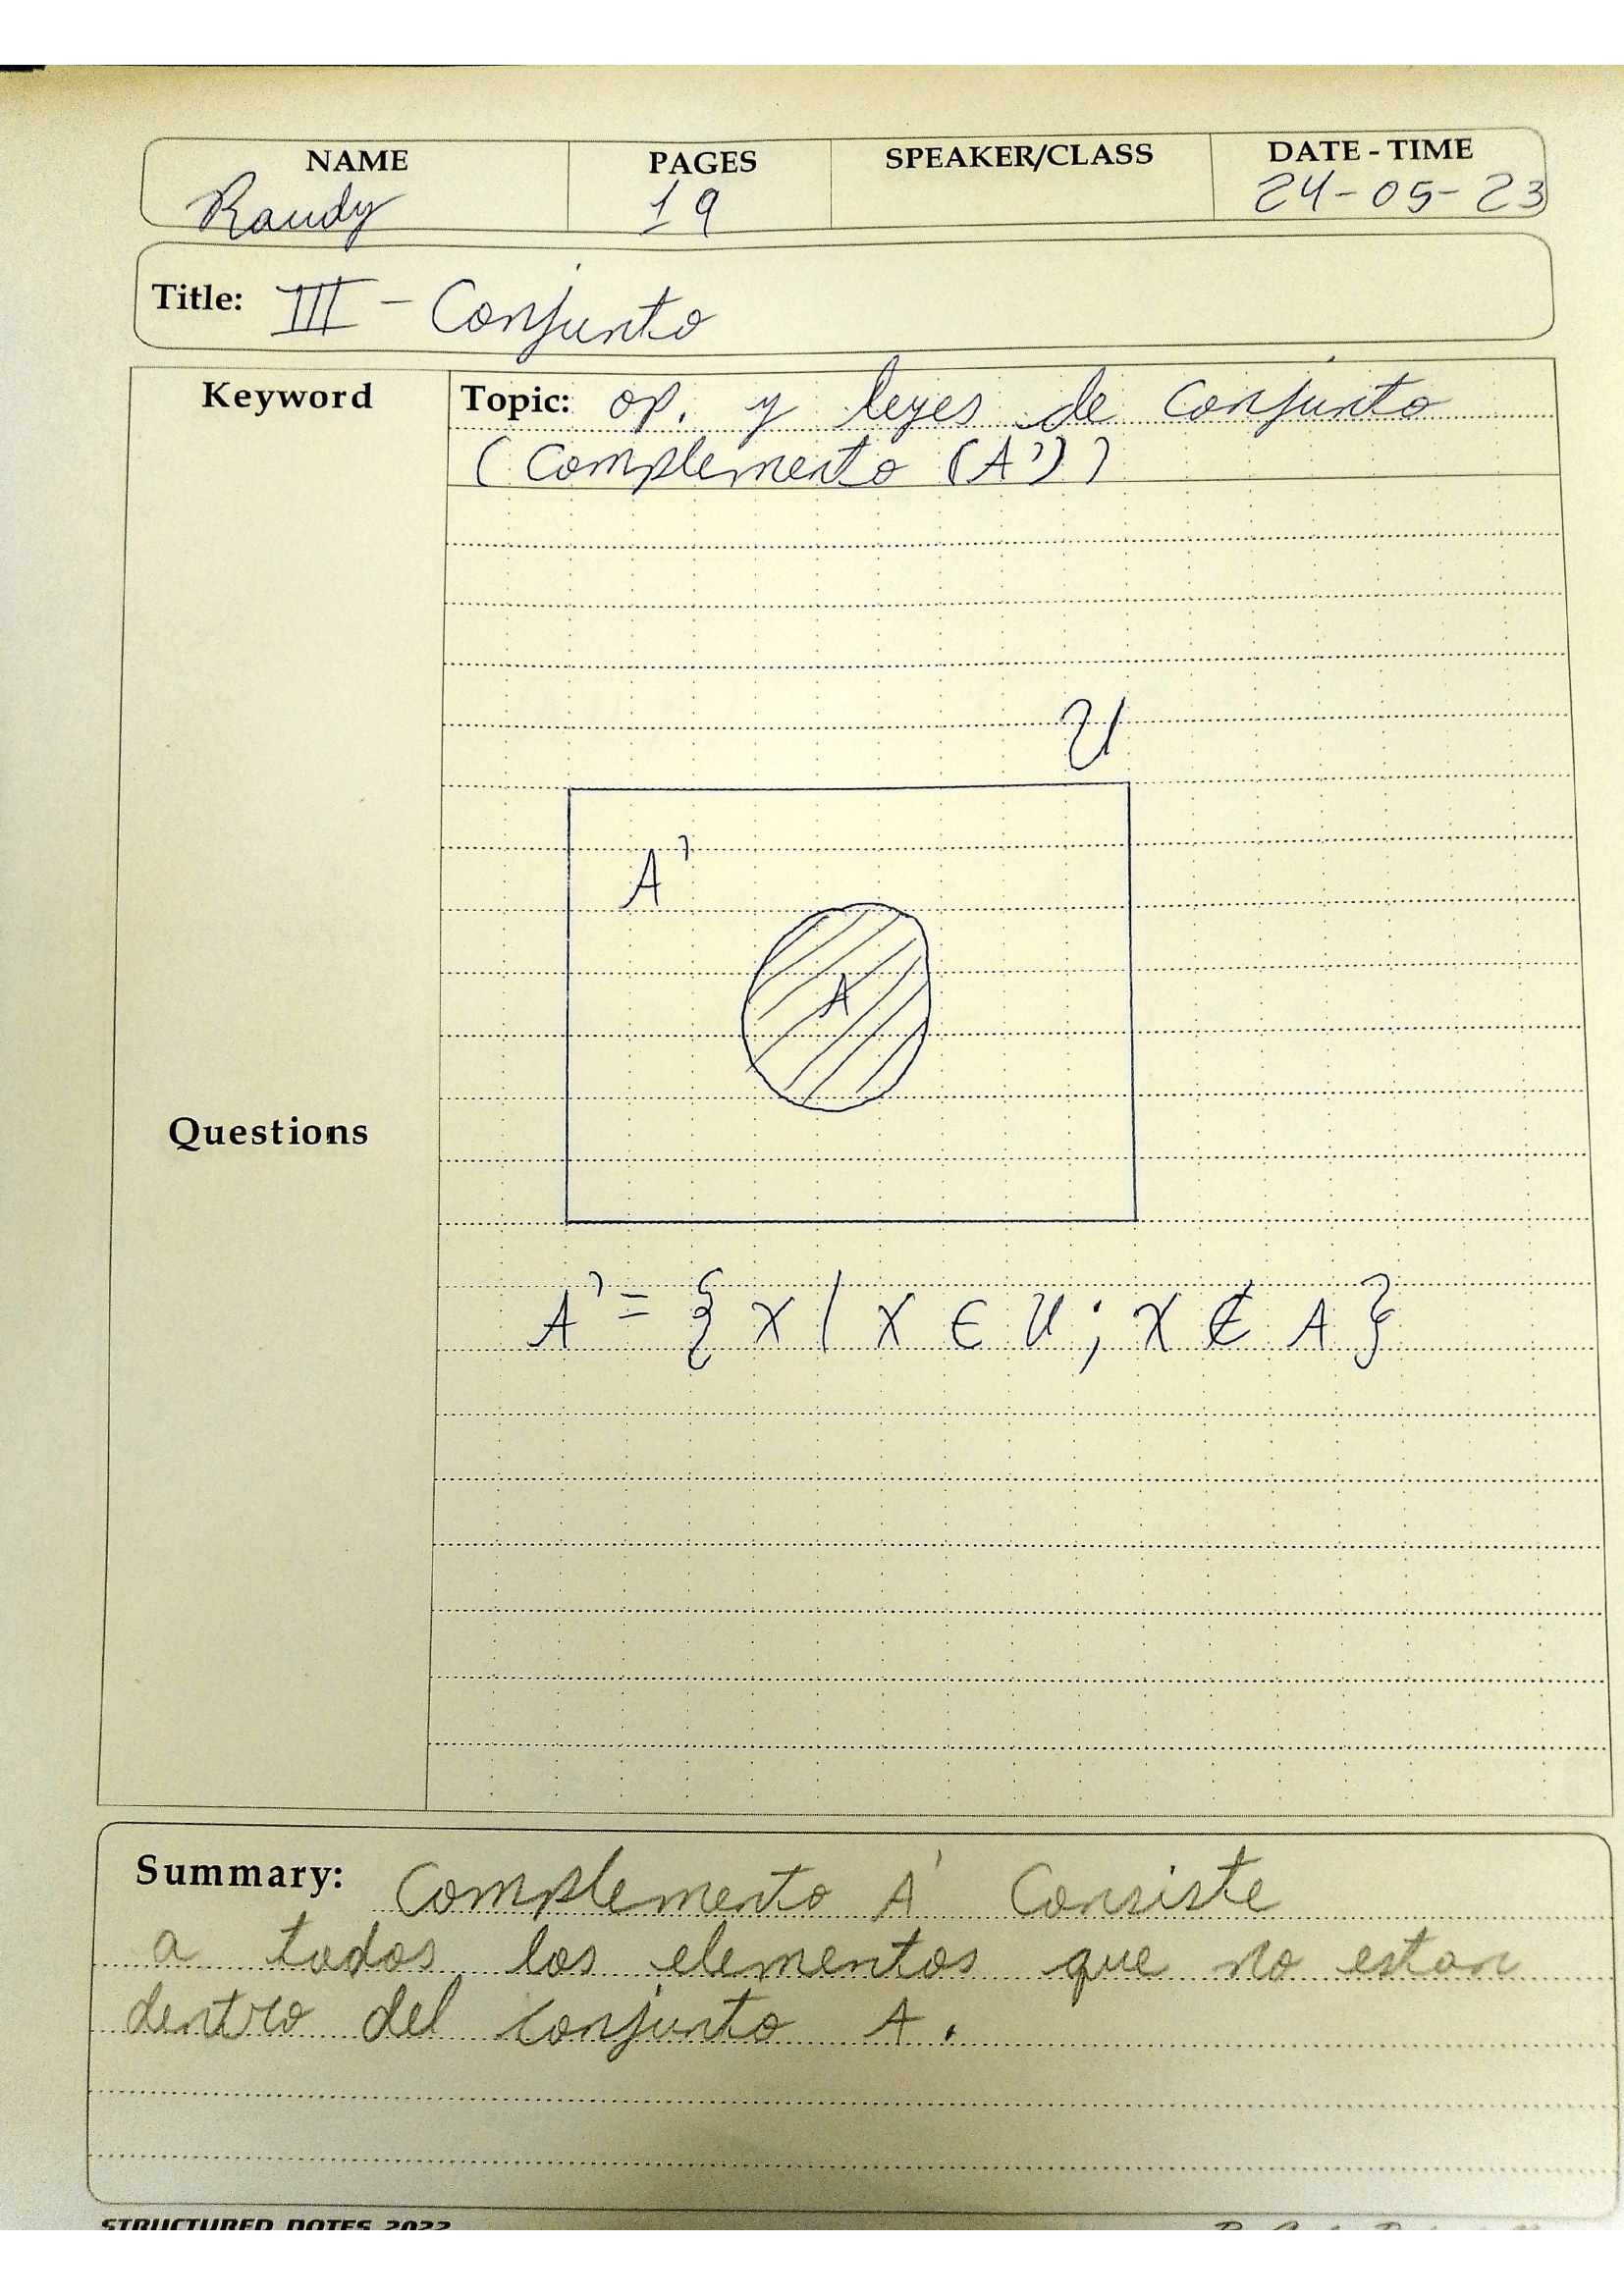 NAME PAGES SPEAKER/CLASS DATE - TIME
Randy 19 24-05-23
Title: III - Conjunto
Keyword
Topic: op. y leyes de conjunto
(Complemento (A'))
U
A'
A
Questions
A' = { x / x ∈ U ; x ∉ A }
Summary: Complemento A' Consiste
a todos los elementos que no estan
dentro del conjunto A.
STRUCTURED NOTES 2022